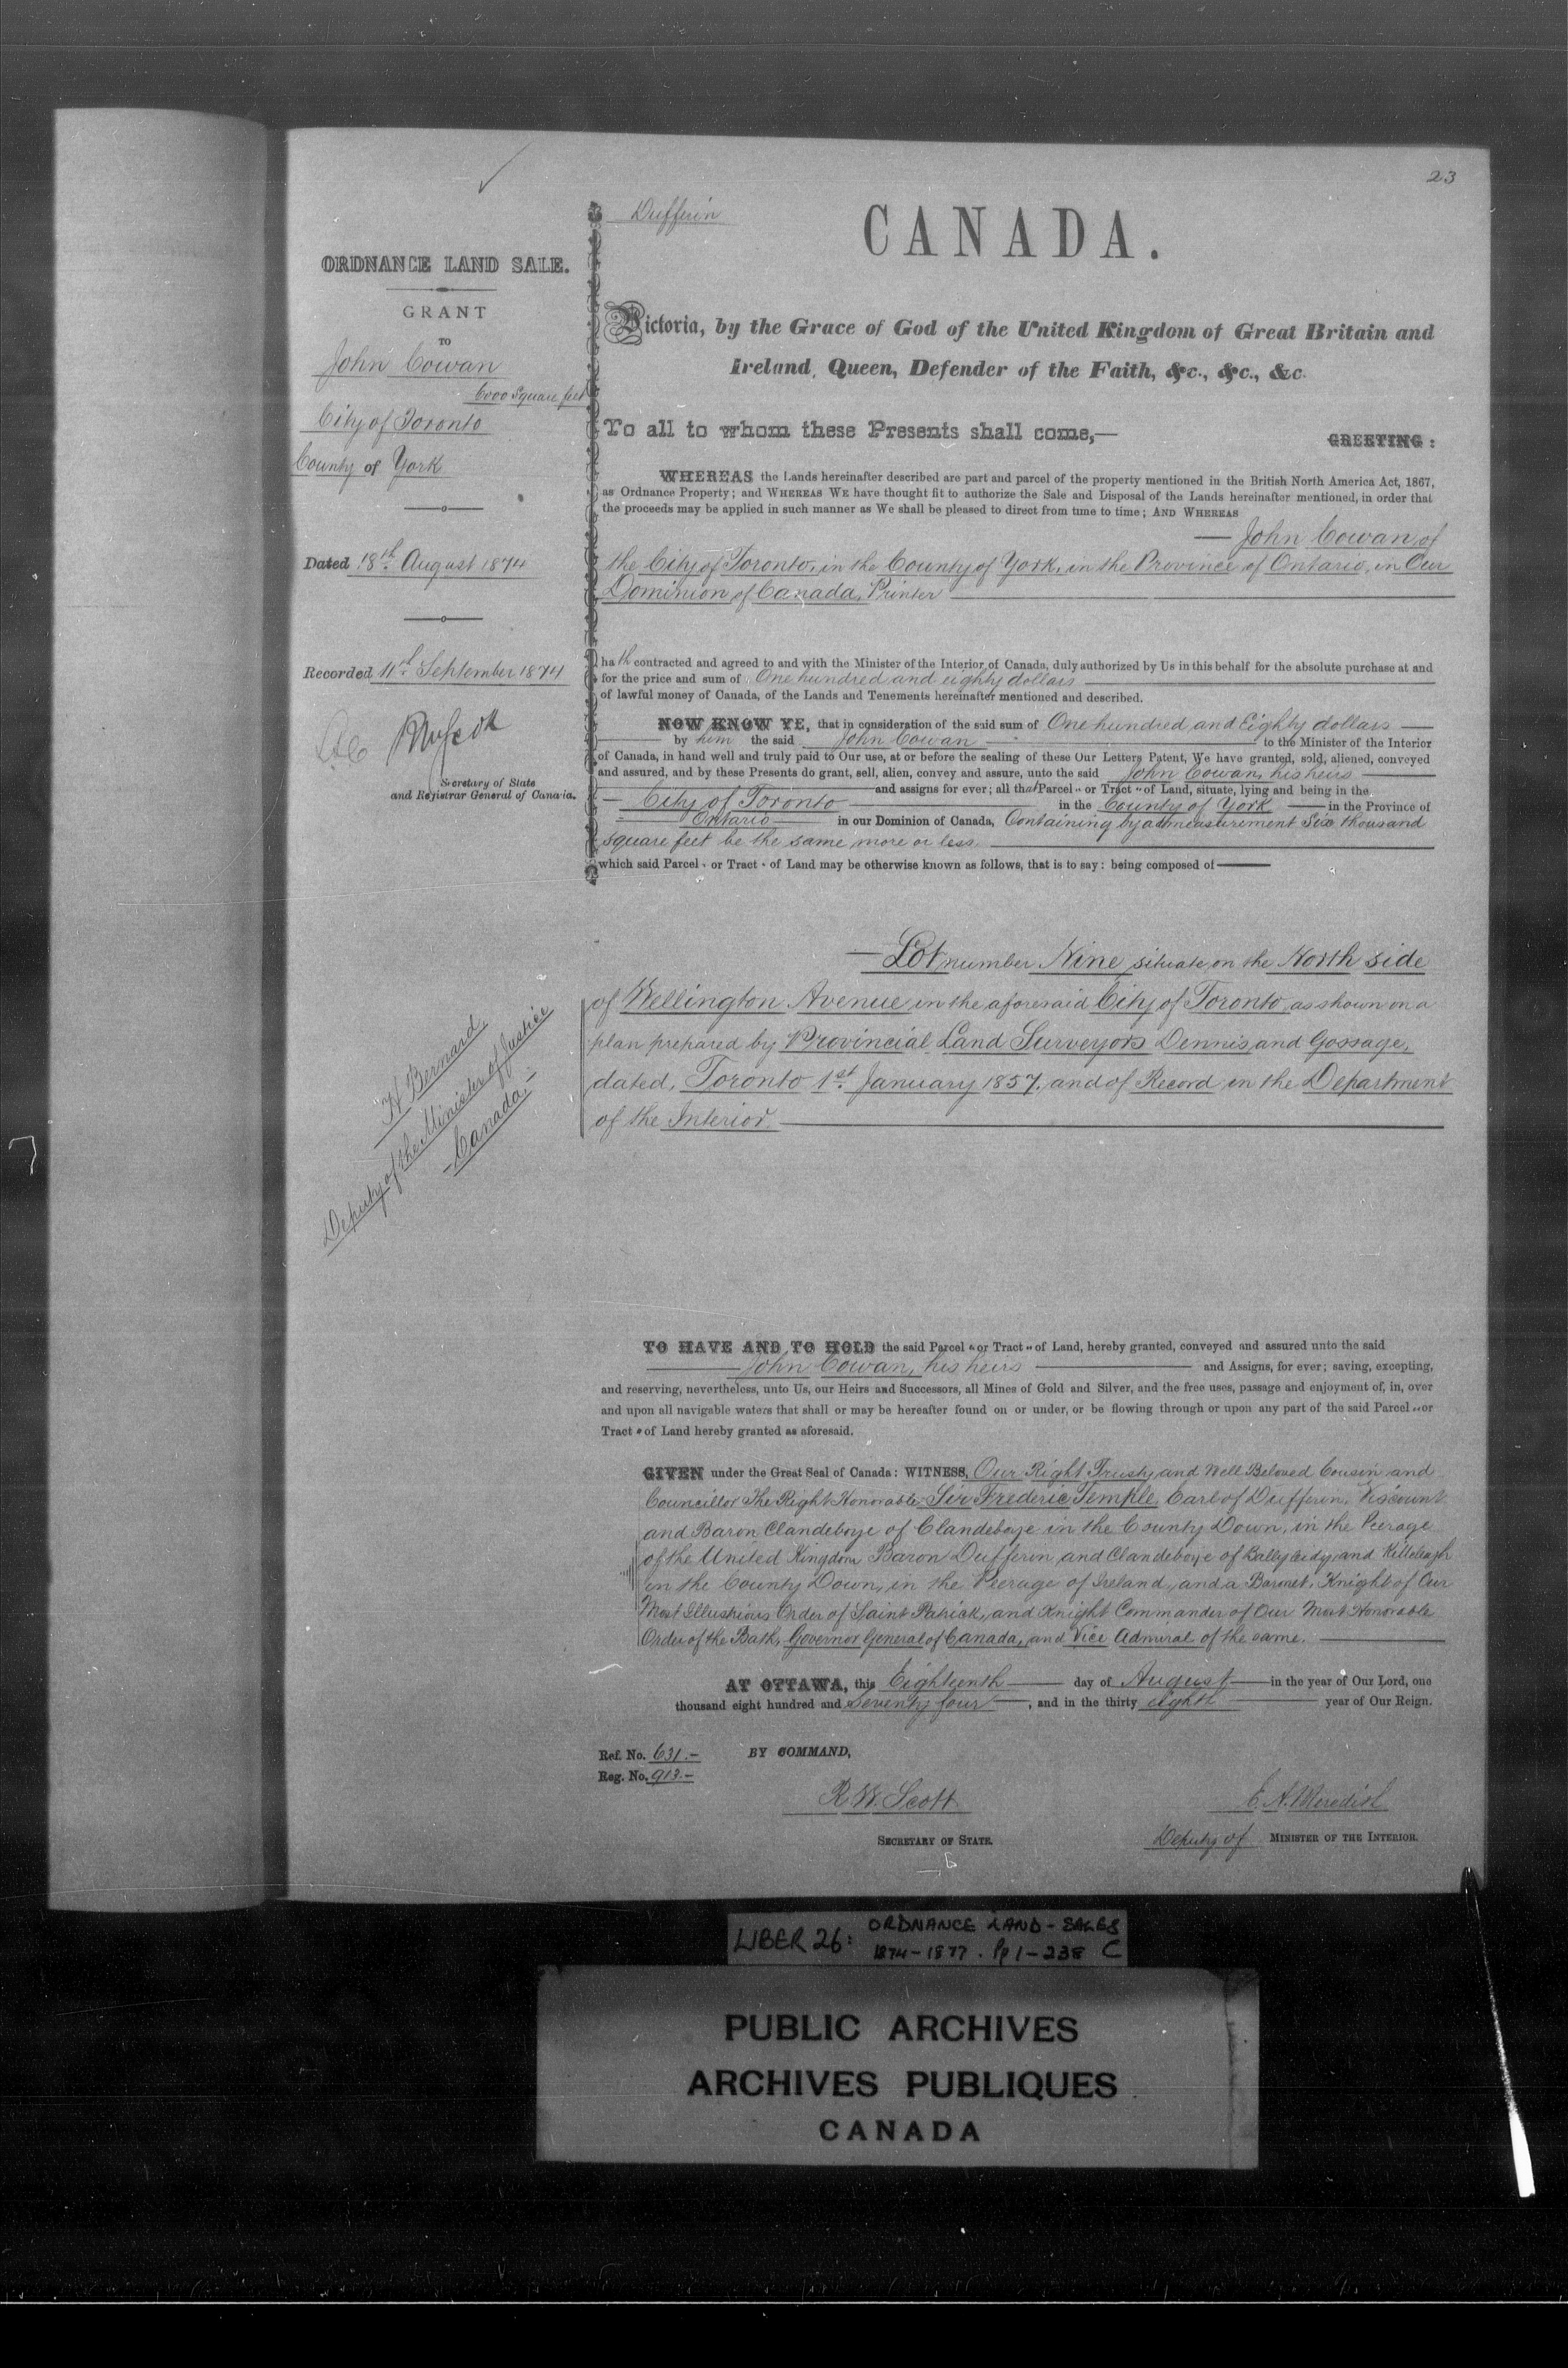 23
Dufferin
CANADA.
ORDNANCE LAND SALE.
GRANT
TO
John Cowan
6000 Square feet
City of Toronto
County of York
Dated 18th. August 1874
Recorded 11th. September 1874
Secretary of State
and Registrar General of Canada.
H Bernard
Deputy of the Minister of Justice
Canada.
Victoria, by the Grace of God of the United Kingdom of Great Britain and
Ireland, Queen, Defender of the Faith, &c., &c., &c.
To all to whom these Presents shall come,—
GREETING:
WHEREAS the Lands hereinafter described are part and parcel of the property mentioned in the British North America Act, 1867,
as Ordnance Property; and WHEREAS WE have thought fit to authorize the Sale and Disposal of the Lands hereinafter mentioned, in order that
the proceeds may be applied in such manner as We shall be pleased to direct from time to time; AND WHEREAS
— John Cowan of
the City of Toronto, in the County of York, in the Province of Ontario, in Our
Dominion of Canada, Printer
hath contracted and agreed to and with the Minister of the Interior of Canada, duly authorized by Us in this behalf for the absolute purchase at and
for the price and sum of One hundred and eighty dollars
of lawful money of Canada, of the Lands and Tenements hereinafter mentioned and described.
NOW KNOW YE, that in consideration of the said sum of One hundred and Eighty dollars —
by him the said John Cowan — to the Minister of the Interior
of Canada, in hand well and truly paid to Our use, at or before the sealing of these Our Letters Patent, We have granted, sold, aliened, conveyed
and assured, and by these Presents do grant, sell, alien, convey and assure, unto the said John Cowan, his heirs —
and assigns for ever; all that Parcel or Tract of Land, situate, lying and being in the
— City of Toronto — in the County of York — in the Province of
Ontario — in our Dominion of Canada, Containing by admeasurement Six thousand
square feet be the same more or less.
which said Parcel or Tract of Land may be otherwise known as follows, that is to say: being composed of —
— Lot number Nine situate on the North side
of Wellington Avenue in the aforesaid City of Toronto as shown on a
plan prepared by Provincial Land Surveyors Dennis and Gossage,
dated, Toronto 1st. January 1857, and of Record in the Department
of the Interior.
TO HAVE AND TO HOLD the said Parcel or Tract of Land, hereby granted, conveyed and assured unto the said
John Cowan, his heirs — and Assigns, for ever; saving, excepting,
and reserving, nevertheless, unto Us, our Heirs and Successors, all Mines of Gold and Silver, and the free uses, passage and enjoyment of, in, over
and upon all navigable waters that shall or may be hereafter found on or under, or be flowing through or upon any part of the said Parcel or
Tract of Land hereby granted as aforesaid.
GIVEN under the Great Seal of Canada: WITNESS, Our Right Trusty and Well Beloved Cousin and
Councillor The Right Honorable Sir Frederic Temple, Earl of Dufferin, Viscount
and Baron Clandeboye of Clandeboye in the County Down, in the Peerage
of the United Kingdom Baron Dufferin and Clandeboye of Ballyleidy and Killeleagh
in the County Down, in the Peerage of Ireland, and a Baronet, Knight of Our
Most Illustrious Order of Saint Patrick, and Knight Commander of Our Most Honorable
Order of the Bath, Governor General of Canada, and Vice Admiral of the same.
AT OTTAWA, this Eighteenth — day of August — in the year of Our Lord, one
thousand eight hundred and Seventy four —, and in the thirty eighth — year of Our Reign.
Ref. No. 631.-
BY COMMAND,
Reg. No. 913.-
R. W. Scott
E. A. Meredith
SECRETARY OF STATE.
Deputy of MINISTER OF THE INTERIOR.
LIBER 26: ORDNANCE LAND-SALES
1874-1877. Pp 1-238 C
PUBLIC ARCHIVES
ARCHIVES PUBLIQUES
CANADA